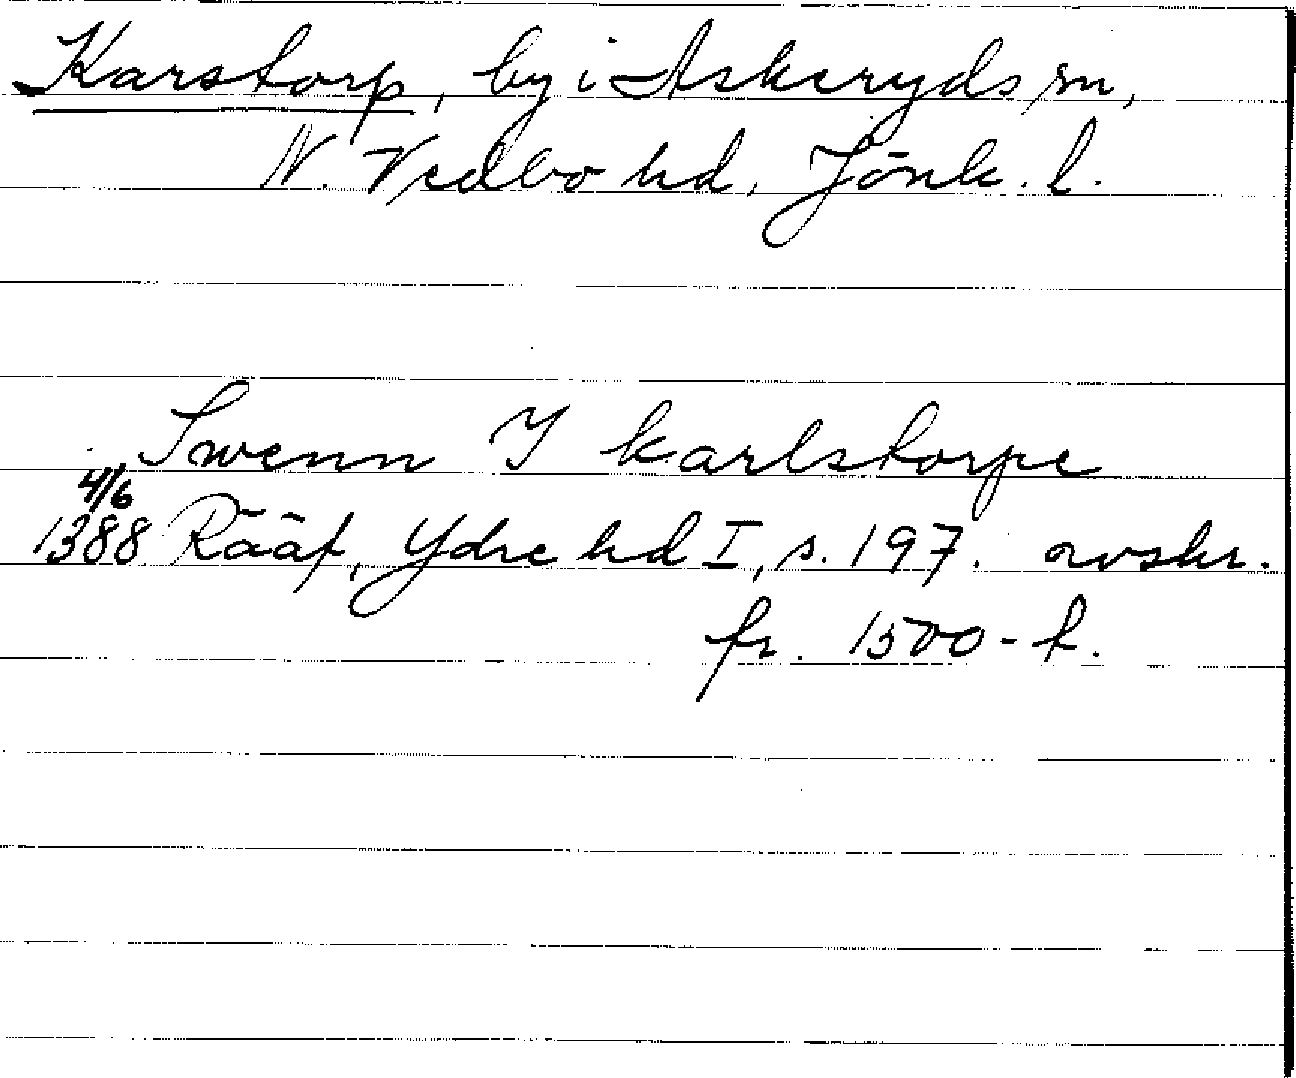 Karstorp, by i Askeryds sn,
N. Vedbo hd, Jönk. l.
Swenn J karlstorpe
4/6
1388 Rääf, Ydre hd I, s. 197. avskr.
fr. 1500-t.